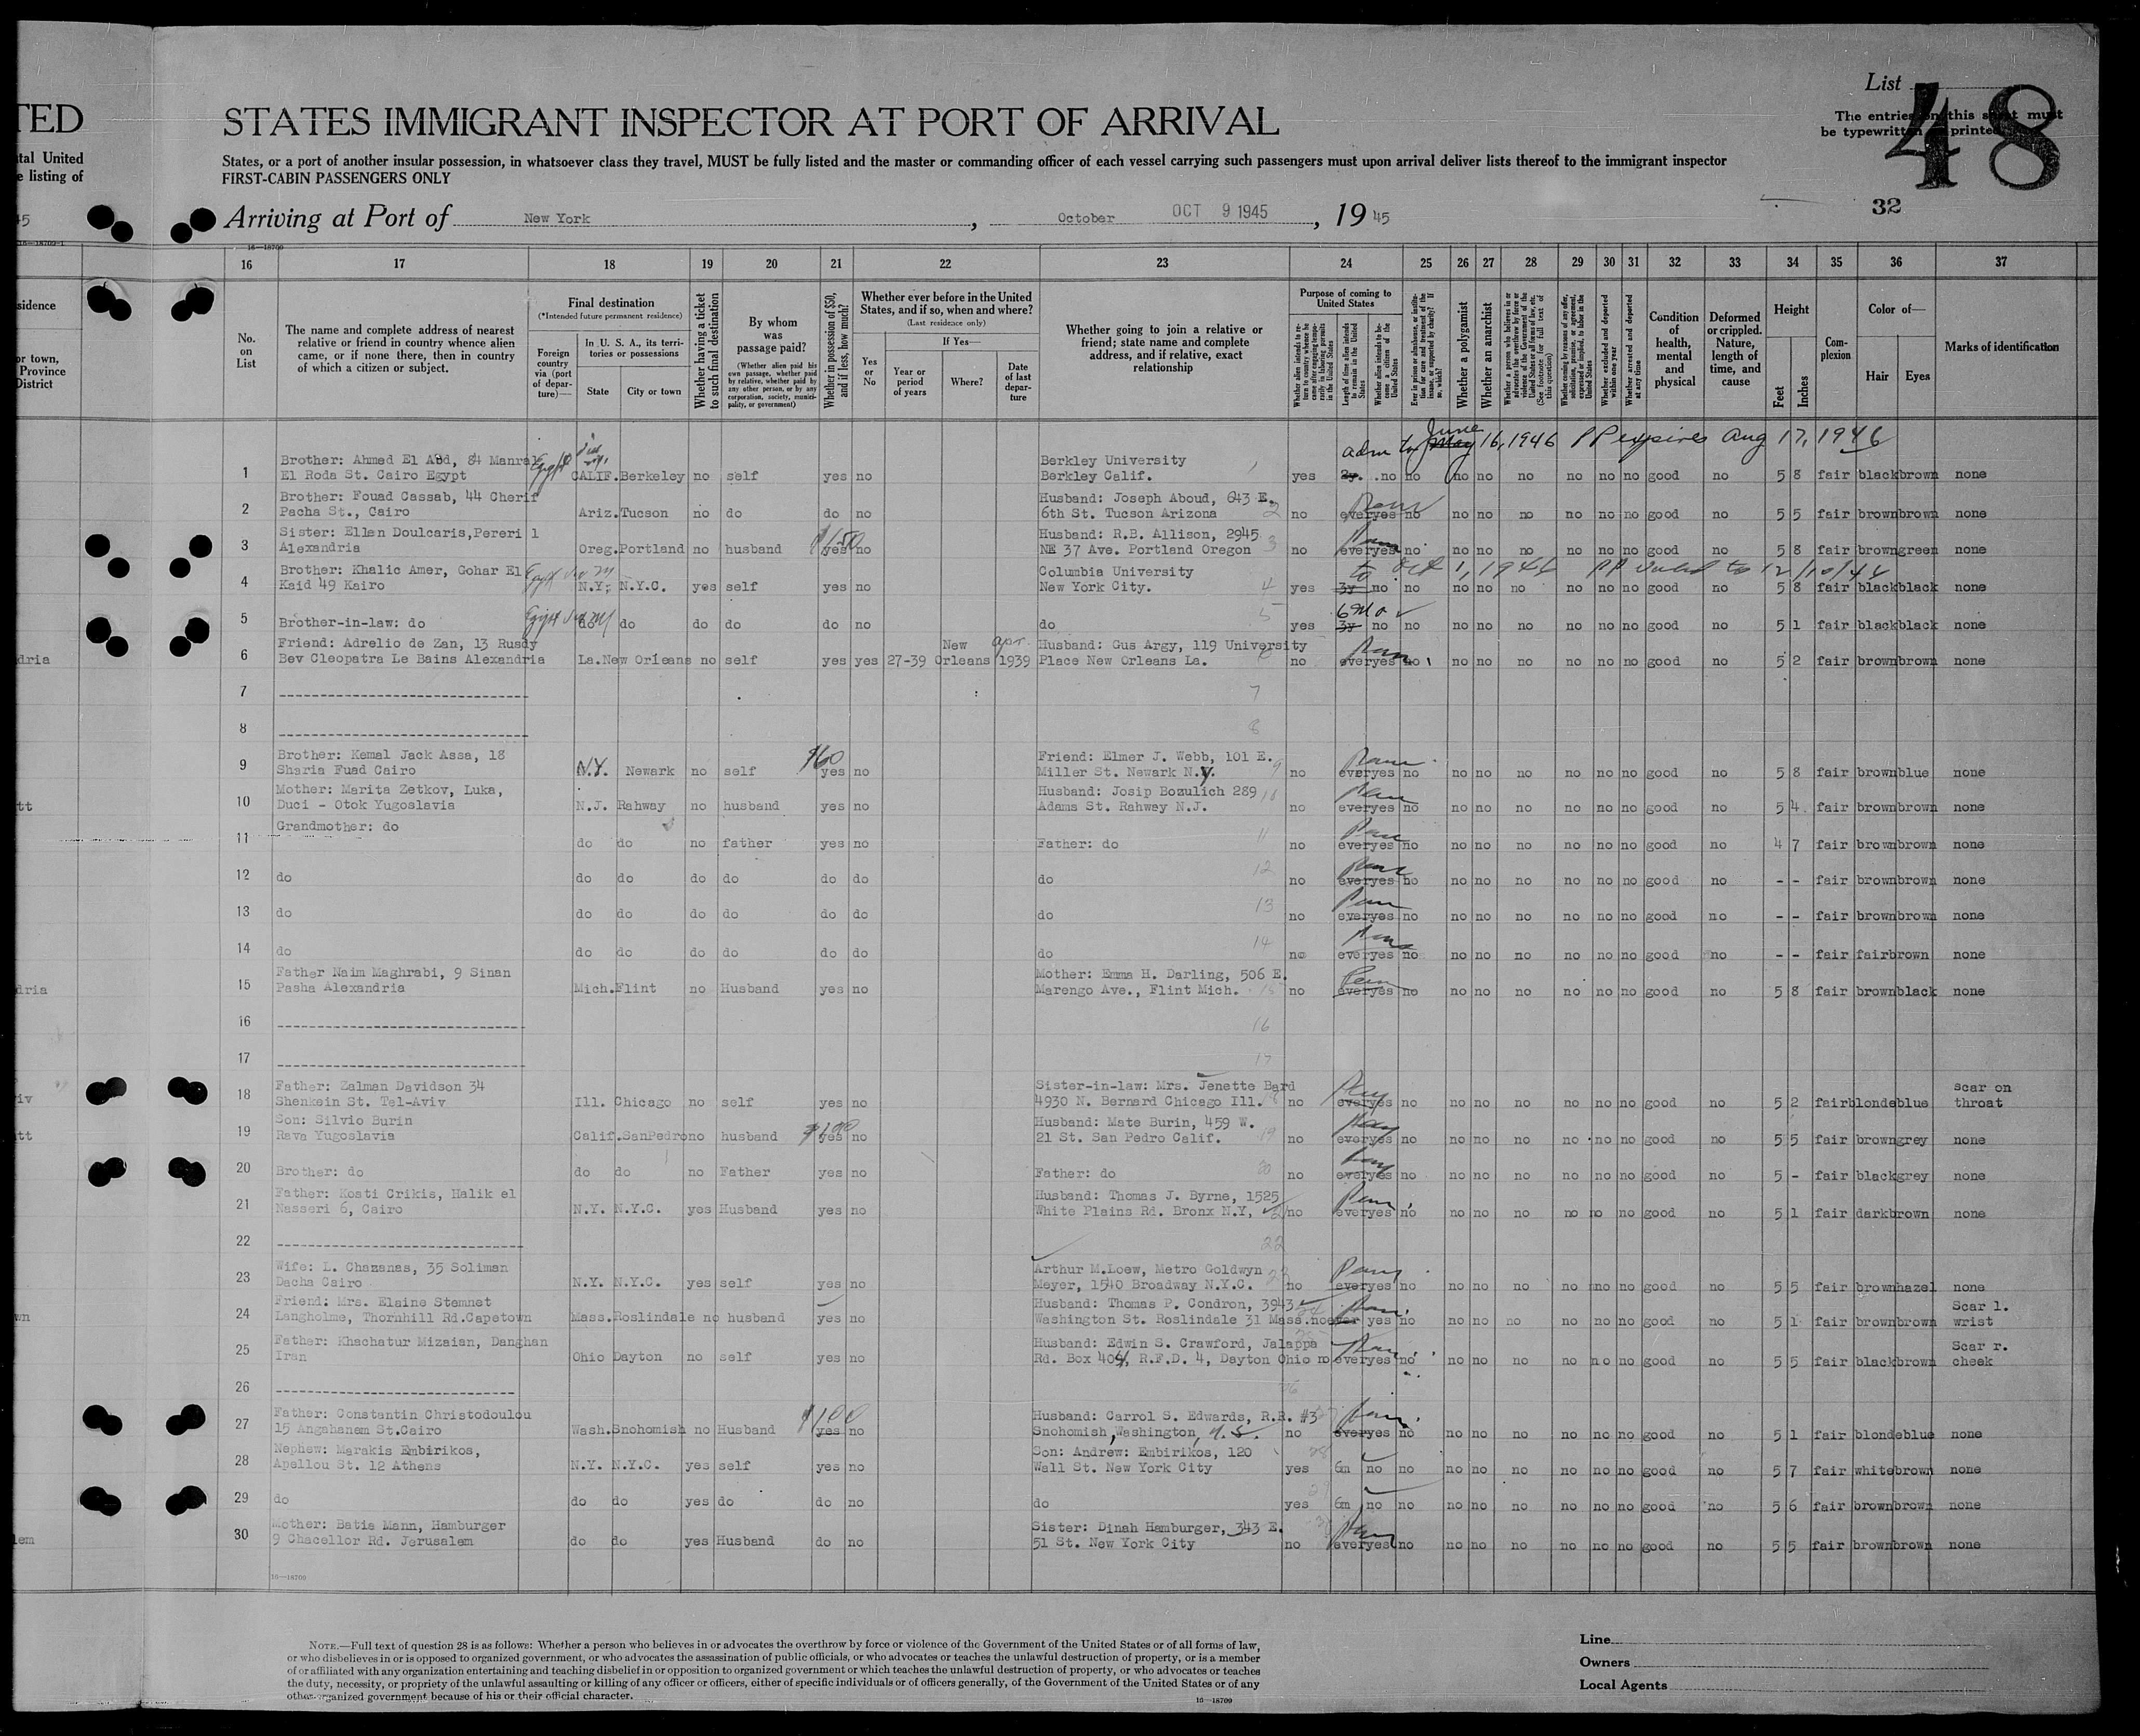 TED STATES IMMIGRANT INSPECTOR AT PORT OF ARRIVAL
List 48
The entries on this sheet must
be typewritten printed
tal United
e listing of
States, or a port of another insular possession, in whatsoever class they travel, MUST be fully listed and the master or commanding officer of each vessel carrying such passengers must upon arrival deliver lists thereof to the immigrant inspector
FIRST-CABIN PASSENGERS ONLY
Arriving at Port of New York, October OCT 9 1945, 1945
32
16—18709
16 17 18 19 20 21 22 23 24 25 26 27 28 29 30 31 32 33 34 35 36 37
No. on List
The name and complete address of nearest relative or friend in country whence alien came, or if none there, then in country of which a citizen or subject.
Final destination
(*Intended future permanent residence)
Foreign country via (port of departure)—
In U. S. A., its territories or possessions
State City or town
Whether having a ticket to such final destination
By whom was passage paid?
(Whether alien paid his own passage, whether paid by relative, whether paid by any other person, or by any corporation, society, municipality, or government)
Whether in possession of $50, and if less, how much?
Whether ever before in the United States, and if so, when and where?
(Last residence only)
Yes or No
If Yes—
Year or period of years
Where?
Date of last departure
Whether going to join a relative or friend; state name and complete address, and if relative, exact relationship
Purpose of coming to United States
Length of time alien intends to remain in the United States
Whether alien intends to become a citizen of the United States
Whether a polygamist
Whether an anarchist
Whether excluded and deported within one year
Whether arrested and deported at any time
Condition of health, mental and physical
Deformed or crippled. Nature, length of time, and cause
Height
Feet Inches
Complexion
Color of—
Hair Eyes
Marks of identification
adm to June May 16, 1946 PP expires Aug 17, 1946
1 Brother: Ahmed El Abd, 84 Manrel Berkley University
El Roda St. Cairo Egypt Egypt CALIF. Berkeley no self yes no Berkley Calif. yes 2y. no no no no no no no no good no 5 8 fair black brown none
2 Brother: Fouad Cassab, 44 Cherif Husband: Joseph Aboud, 643 E.
Pacha St., Cairo Ariz. Tucson no do do no 6th St. Tucson Arizona no ever yes no no no no no no no good no 5 5 fair brown brown none
3 Sister: Ellen Doulcaris, Pereri 1 $150 Husband: R.B. Allison, 2945
Alexandria Oreg. Portland no husband yes no NE 37 Ave. Portland Oregon no ever yes no no no no no no no good no 5 8 fair brown green none
4 Brother: Khalic Amer, Gohar El Columbia University
Kaid 49 Kairo Egypt N.Y. N.Y.C. yes self yes no New York City. yes 3y no no no no no no no no good no 5 8 fair black black none
5 6 Mo
Brother-in-law: do Egypt do do do do do no do yes 3y no no no no no no no no good no 5 1 fair black black none
6 Friend: Adrelio de Zan, 13 Rusdy New apr. Husband: Gus Argy, 119 University
Bev Cleopatra Le Bains Alexandria La. New Orleans no self yes yes 27-39 Orleans 1939 Place New Orleans La. no ever yes no no no no no no no good no 5 2 fair brown brown none
7
8
9 Brother: Kemal Jack Assa, 18 $60 Friend: Elmer J. Webb, 101 E.
Sharia Fuad Cairo N.Y. Newark no self yes no Miller St. Newark N.Y. no ever yes no no no no no no no good no 5 8 fair brown blue none
10 Mother: Marita Zetkov, Luka, Husband: Josip Bozulich 289
Duci - Otok Yugoslavia N.J. Rahway no husband yes no Adams St. Rahway N.J. no ever yes no no no no no no no good no 5 4 fair brown brown none
11 Grandmother: do
do do no father yes no Father: do no ever yes no no no no no no no good no 4 7 fair brown brown none
12 do do do do do do do do no ever yes no no no no no no no good no - - fair brown brown none
13 do do do do do do do do no ever yes no no no no no no no good no - - fair brown brown none
14 do do do do do do do do no ever yes no no no no no no no good no - - fair fair brown none
15 Father Naim Maghrabi, 9 Sinan Mother: Emma H. Darling, 506 E.
Pasha Alexandria Mich. Flint no Husband yes no Marengo Ave., Flint Mich. no ever yes no no no no no no no good no 5 8 fair brown black none
16
17
18 Father: Zalman Davidson 34 Sister-in-law: Mrs. Jenette Bard scar on
Shenkein St. Tel-Aviv Ill. Chicago no self yes no 4930 N. Bernard Chicago Ill. no ever yes no no no no no no no good no 5 2 fair blonde blue throat
19 Son: Silvio Burin $100 Husband: Mate Burin, 459 W.
Rava Yugoslavia Calif. SanPedro no husband yes no 21 St. San Pedro Calif. no ever yes no no no no no no no good no 5 5 fair brown grey none
20 Brother: do do do no Father yes no Father: do no ever yes no no no no no no good no 5 - fair black grey none
21 Father: Kosti Crikis, Halik el Husband: Thomas J. Byrne, 1525
Nasseri 6, Cairo N.Y. N.Y.C. yes Husband yes no White Plains Rd. Bronx N.Y. no ever yes no no no no no no no good no 5 1 fair dark brown none
22
23 Wife: L. Chazanas, 35 Soliman Arthur M.Loew, Metro Goldwyn
Dacha Cairo N.Y. N.Y.C. yes self yes no Meyer, 1540 Broadway N.Y.C. no ever yes no no no no no no no good no 5 5 fair brown hazel none
24 Friend: Mrs. Elaine Stemnet Husband: Thomas P. Condron, 3943 Scar l.
Langholme, Thornhill Rd.Capetown Mass. Roslindale no husband yes no Washington St. Roslindale 31 Mass. no ever yes no no no no no no no good no 5 1 fair brown brown wrist
25 Father: Khachatur Mizaian, Danghan Husband: Edwin S. Crawford, Jalappa Scar r.
Iran Ohio Dayton no self yes no Rd. Box 404, R.F.D. 4, Dayton Ohio no ever yes no no no no no no no good no 5 5 fair black brown cheek
26
27 Father: Constantin Christodoulou $100 Husband: Carrol S. Edwards, R.R. #3
15 Angahanem St.Cairo Wash. Snohomish no Husband yes no Snohomish, Washington, U.S. no ever yes no no no no no no no good no 5 1 fair blonde blue none
28 Nephew: Marakis Embirikos, Son: Andrew: Embirikos, 120
Apellou St. 12 Athens N.Y. N.Y.C. yes self yes no Wall St. New York City yes 6m no no no no no no no no good no 5 7 fair white brown none
29 do do do yes do do no do yes 6m no no no no no no no no good no 5 6 fair brown brown none
30 Mother: Batia Mann, Hamburger Sister: Dinah Hamburger, 343 E.
9 Chacellor Rd. Jerusalem do do yes Husband do no 51 St. New York City no ever yes no no no no no no no good no 5 5 fair brown brown none
16—18709
NOTE.—Full text of question 28 is as follows: Whether a person who believes in or advocates the overthrow by force or violence of the Government of the United States or of all forms of law,
or who disbelieves in or is opposed to organized government, or who advocates the assassination of public officials, or who advocates or teaches the unlawful destruction of property, or is a member
of or affiliated with any organization entertaining and teaching disbelief in or opposition to organized government or which teaches the unlawful destruction of property, or who advocates or teaches
the duty, necessity, or propriety of the unlawful assaulting or killing of any officer or officers, either of specific individuals or of officers generally, of the Government of the United States or of any
other organized government because of his or their official character.
16—18709
Line
Owners
Local Agents